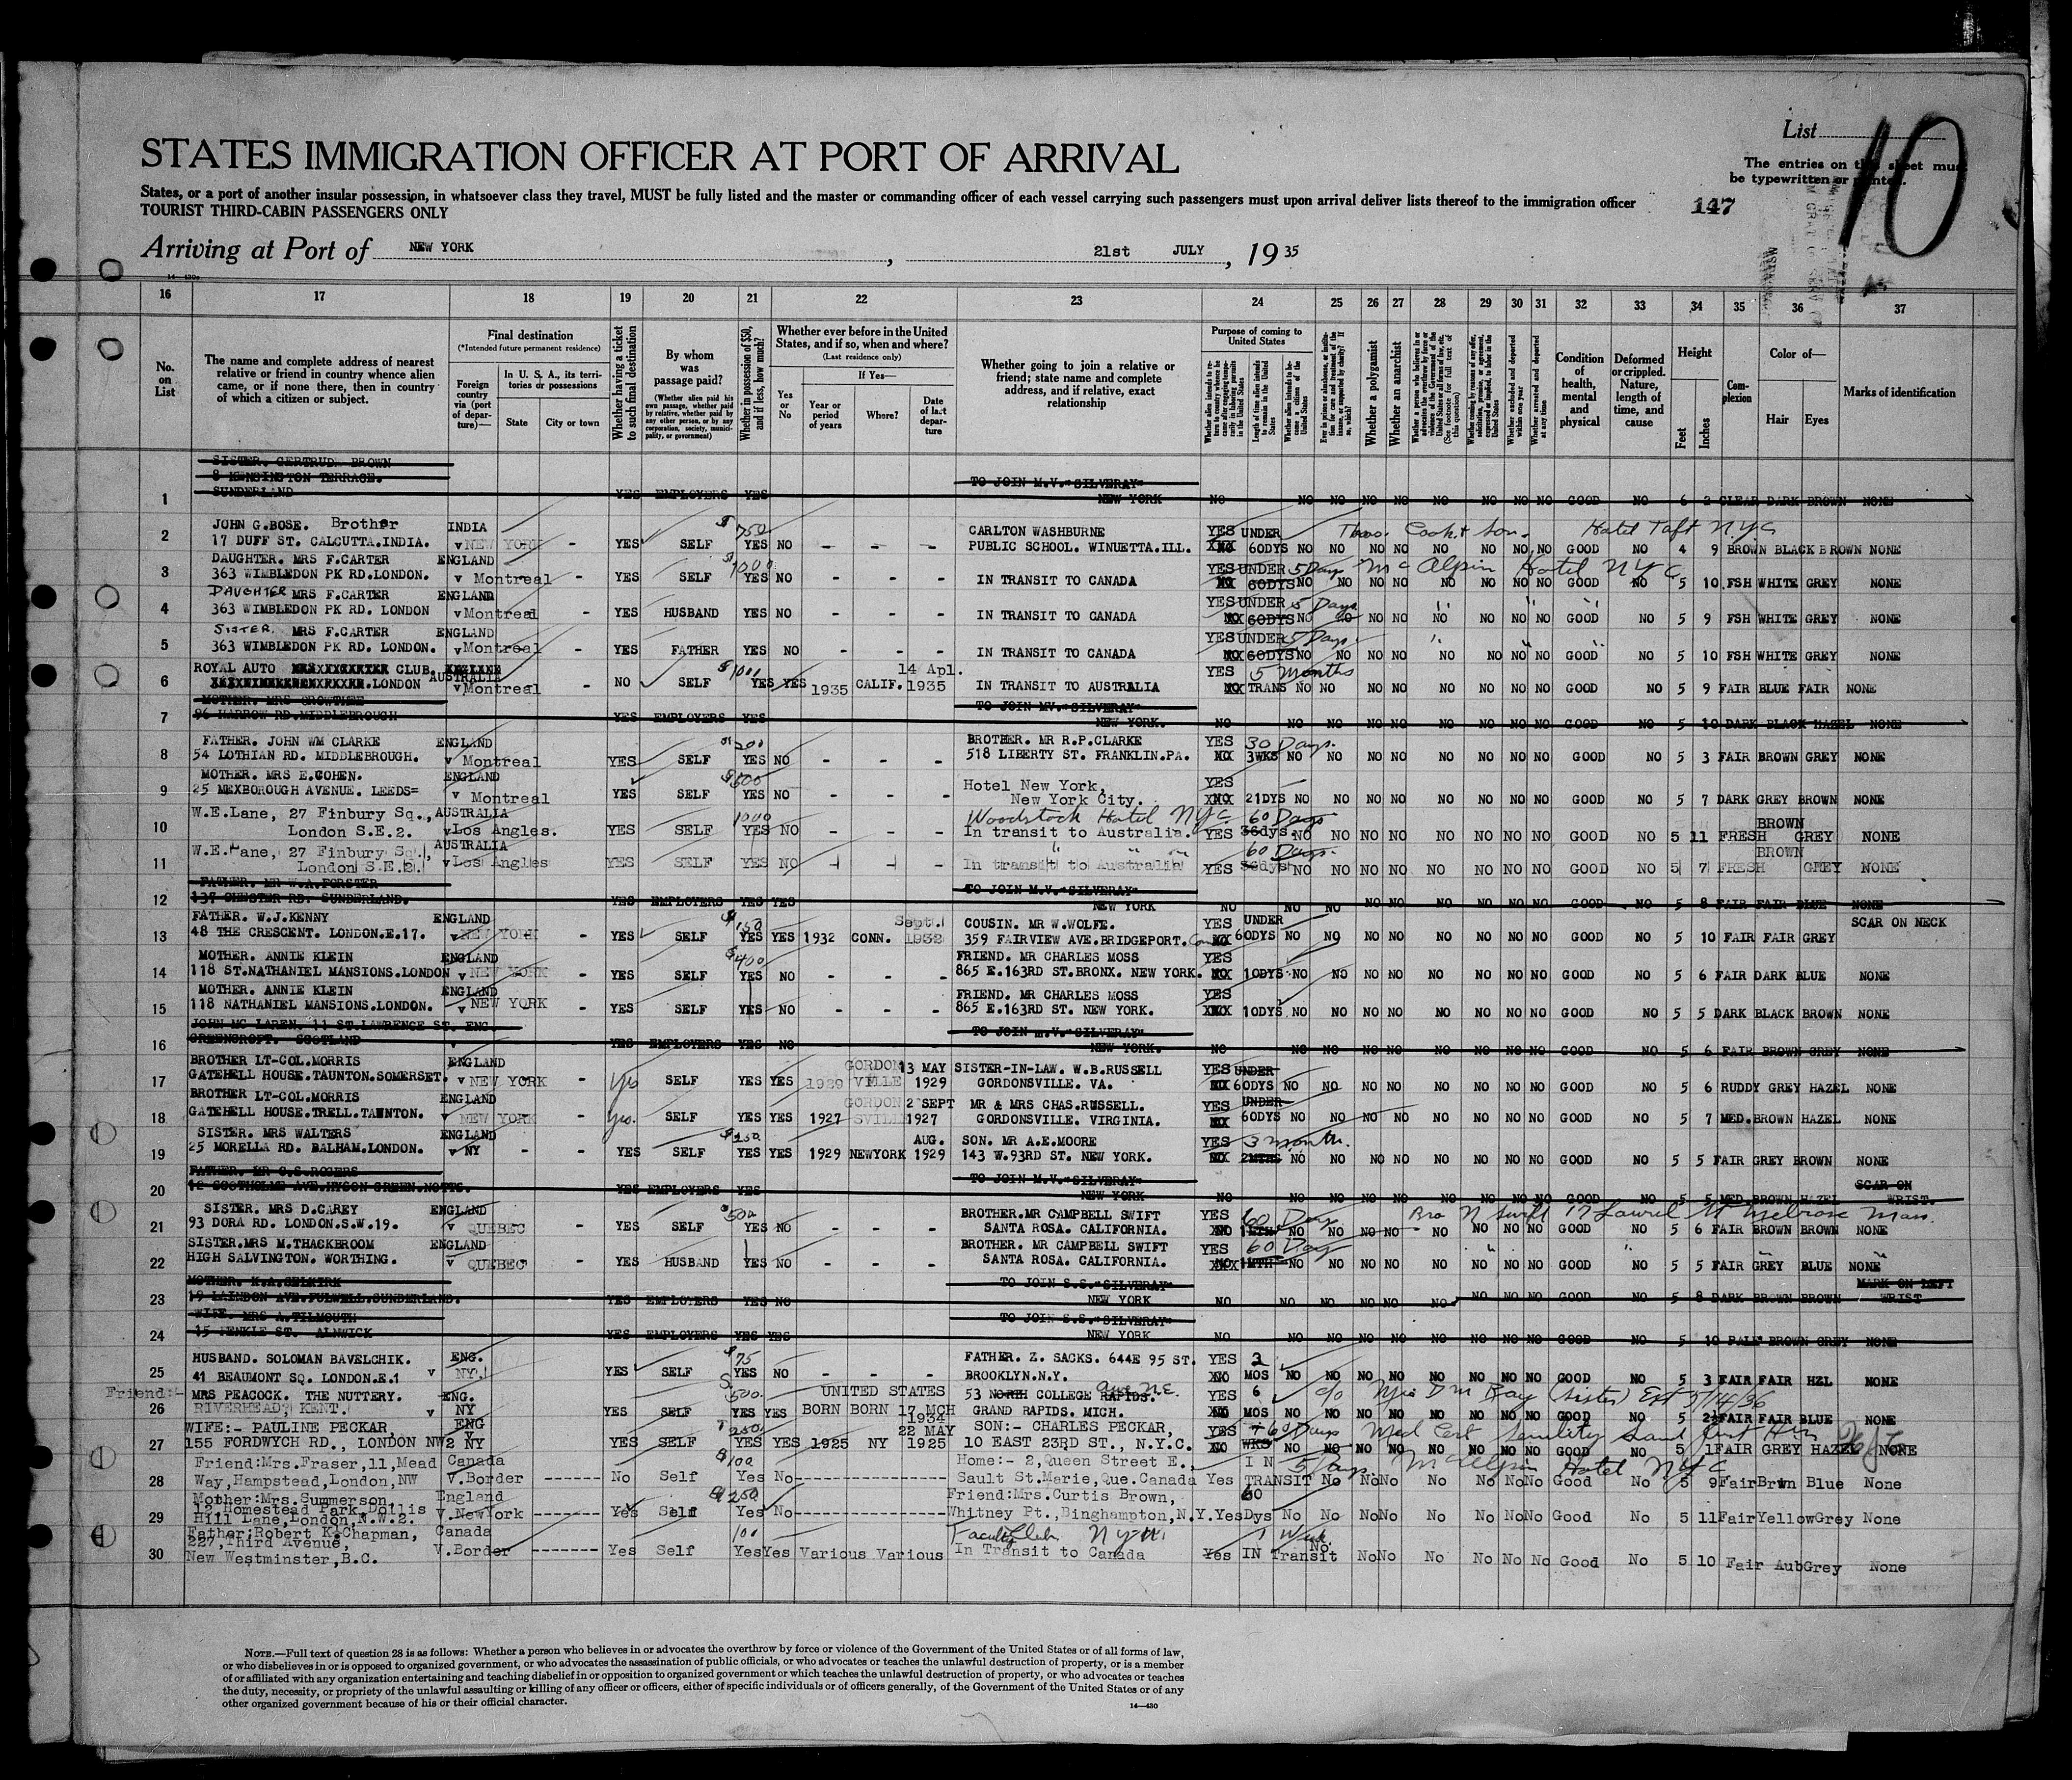 List 10
STATES IMMIGRATION OFFICER AT PORT OF ARRIVAL
The entries on this sheet must
be typewritten or printed.
States, or a port of another insular possession, in whatsoever class they travel, MUST be fully listed and the master or commanding officer of each vessel carrying such passengers must upon arrival deliver lists thereof to the immigration officer
TOURIST THIRD-CABIN PASSENGERS ONLY
147
Arriving at Port of NEW YORK, 21st JULY, 1935
16 17 18 19 20 21 22 23 24 25 26 27 28 29 30 31 32 33 34 35 36 37
No. on List
The name and complete address of nearest relative or friend in country whence alien came, or if none there, then in country of which a citizen or subject.
Final destination
(*Intended future permanent residence)
Foreign country via (port of departure)—
In U. S. A., its territories or possessions
State
City or town
Whether having a ticket to such final destination
By whom was passage paid?
(Whether alien paid his own passage, whether paid by relative, whether paid by any other person, or by any corporation, society, municipality, or government)
Whether in possession of $50, and if less, how much?
Whether ever before in the United States, and if so, when and where?
(Last residence only)
Yes or No
If Yes—
Year or period of years
Where?
Date of last departure
Whether going to join a relative or friend; state name and complete address, and if relative, exact relationship
Purpose of coming to United States
Length of time alien intends to remain in the United States
Whether a polygamist
Whether an anarchist
Whether arrested and deported at any time
Condition of health, mental and physical
Deformed or crippled. Nature, length of time, and cause
Height
Feet
Inches
Complexion
Color of—
Hair
Eyes
Marks of identification
SISTER. GERTRUDE BROWN
8 KENSINGTON TERRACE.
1 SUNDERLAND YES EMPLOYERS YES TO JOIN M.V."SILVERAY" NEW YORK NO NO NO NO NO NO NO NO NO GOOD NO 6 2 CLEAR DARK BROWN NONE
JOHN G.BOSE. Brother INDIA $750 CARLTON WASHBURNE YES UNDER Thos. Cook & Son. Hotel Taft N.Y.C
2 17 DUFF ST. CALCUTTA.INDIA. v NEW YORK - YES SELF YES NO - - - PUBLIC SCHOOL. WINUETTA.ILL. 60DYS NO NO NO NO NO NO NO NO GOOD NO 4 9 BROWN BLACK BROWN NONE
DAUGHTER. MRS F.CARTER ENGLAND $1000 YES UNDER 5 Days McAlpin Hotel N Y C
3 363 WIMBLEDON PK RD.LONDON. v Montreal - YES SELF YES NO - - - IN TRANSIT TO CANADA 60DYS NO NO NO NO NO NO NO NO GOOD NO 5 10 FSH WHITE GREY NONE
DAUGHTER MRS F.CARTER ENGLAND YES UNDER 5 Days
4 363 WIMBLEDON PK RD. LONDON v Montreal - YES HUSBAND YES NO - - - IN TRANSIT TO CANADA 60DYS NO NO NO NO NO NO NO NO GOOD NO 5 9 FSH WHITE GREY NONE
SISTER. MRS F.CARTER ENGLAND YES UNDER 5 Days
5 363 WIMBLEDON PK RD. LONDON. v Montreal - YES FATHER YES NO - - - IN TRANSIT TO CANADA 60DYS NO NO NO NO NO NO NO NO GOOD NO 5 10 FSH WHITE GREY NONE
ROYAL AUTO CLUB. ENGLAND AUSTRALIA $1000 14 Apl. YES 5 Months
6 LONDON v Montreal - NO SELF YES YES 1935 CALIF. 1935 IN TRANSIT TO AUSTRALIA TRANS NO NO NO NO NO NO NO NO GOOD NO 5 9 FAIR BLUE FAIR NONE
MOTHER. MRS CROWTHER TO JOIN MV."SILVERAY"
7 96 HARROW RD.MIDDLEBROUGH YES EMPLOYERS YES NEW YORK. NO NO NO NO NO NO NO NO NO GOOD NO 5 10 DARK BLACK HAZEL NONE
FATHER. JOHN WM CLARKE ENGLAND $200 BROTHER. MR R.P.CLARKE YES 30 Days.
8 54 LOTHIAN RD. MIDDLEBROUGH. v Montreal YES SELF YES NO - - - 518 LIBERTY ST. FRANKLIN.PA. 3WKS NO NO NO NO NO NO NO NO GOOD NO 5 3 FAIR BROWN GREY NONE
MOTHER. MRS E.COHEN. ENGLAND $500 Hotel New York, YES
9 25 MEXBOROUGH AVENUE. LEEDS= v Montreal YES SELF YES NO - - - New York City. 21DYS NO NO NO NO NO NO NO NO GOOD NO 5 7 DARK GREY BROWN NONE
W.E.Lane, 27 Finbury Sq., AUSTRALIA 1000 Woodstock Hotel NYC 60 Days BROWN
10 London S.E.2. v Los Angles. YES SELF YES NO - - - In transit to Australia. YES 36dys. NO NO NO NO NO NO NO NO GOOD NO 5 11 FRESH GREY NONE
W.E.Lane, 27 Finbury Sq., AUSTRALIA " " " 60 Days. BROWN
11 London S.E.2. v Los Angles YES SELF YES NO - - - In transit to Australia YES 36dys NO NO NO NO NO NO NO NO GOOD NO 5 7 FRESH GREY NONE
FATHER. MR W.A.FORSTER TO JOIN M.V."SILVERAY"
12 137 CHESTER RD. SUNDERLAND. YES EMPLOYERS YES YES NEW YORK NO NO NO NO NO NO NO NO NO GOOD NO 5 8 FAIR FAIR BLUE NONE
FATHER. W.J.KENNY ENGLAND $150 Sept. COUSIN. MR W.WOLFE. YES UNDER SCAR ON NECK
13 48 THE CRESCENT. LONDON.E.17. v NEW YORK - YES SELF YES YES 1932 CONN. 1932 359 FAIRVIEW AVE.BRIDGEPORT. Conn 60DYS NO NO NO NO NO NO NO NO GOOD NO 5 10 FAIR FAIR GREY
MOTHER. ANNIE KLEIN ENGLAND $400 FRIEND. MR CHARLES MOSS YES
14 118 ST.NATHANIEL MANSIONS.LONDON v NEW YORK - YES SELF YES NO - - - 865 E.163RD ST.BRONX. NEW YORK. 10DYS NO NO NO NO NO NO NO NO GOOD NO 5 6 FAIR DARK BLUE NONE
MOTHER. ANNIE KLEIN ENGLAND FRIEND. MR CHARLES MOSS YES
15 118 NATHANIEL MANSIONS.LONDON. v NEW YORK - YES SELF YES NO - - - 865 E.163RD ST. NEW YORK. 10DYS NO NO NO NO NO NO NO NO GOOD NO 5 5 DARK BLACK BROWN NONE
JOHN MC LAREN. 11 ST.LAWRENCE ST. ENG. TO JOIN M.V."SILVERAY"
16 GREENCROFT. SCOTLAND YES EMPLOYERS YES NO NEW YORK. NO NO NO NO NO NO NO NO NO GOOD NO 5 6 FAIR BROWN GREY NONE
BROTHER LT-COL.MORRIS ENGLAND GORDON 13 MAY SISTER-IN-LAW. W.B.RUSSELL YES UNDER
17 GATEHELL HOUSE.TAUNTON.SOMERSET. v NEW YORK - yes SELF YES YES 1929 VILLE 1929 GORDONSVILLE. VA. 60DYS NO NO NO NO NO NO NO NO GOOD NO 5 6 RUDDY GREY HAZEL NONE
BROTHER LT-COL.MORRIS ENGLAND GORDON 2 SEPT MR & MRS CHAS.RUSSELL. YES UNDER
18 GATEHELL HOUSE.TRELL.TAUNTON. v NEW YORK - yes. SELF YES YES 1927 SVILLE 1927 GORDONSVILLE. VIRGINIA. 60DYS NO NO NO NO NO NO NO NO GOOD NO 5 7 MED.BROWN HAZEL NONE
SISTER. MRS WALTERS ENGLAND $250 AUG. SON. MR A.E.MOORE YES 3 months.
19 25 MORELLA RD. BALHAM.LONDON. v NY - - YES SELF YES YES 1929 NEWYORK 1929 143 W.93RD ST. NEW YORK. 2MTHS NO NO NO NO NO NO NO NO GOOD NO 5 5 FAIR GREY BROWN NONE
FATHER. MR C.S.ROGERS TO JOIN M.V."SILVERAY" SCAR ON
20 12 SCOTHOLME AVE.HYSON GREEN.NOTTS. YES EMPLOYERS YES NEW YORK NO NO NO NO NO NO NO NO NO GOOD NO 5 5 MED.BROWN HAZEL WRIST.
SISTER. MRS D.CAREY ENGLAND $500 BROTHER.MR CAMPBELL SWIFT YES 60 Days Bro N Swift 17 Laurel St Melrose Mass.
21 93 DORA RD. LONDON.S.W.19. v QUEBEC - YES SELF YES NO - - - SANTA ROSA. CALIFORNIA. 1MTH NO NO NO NO NO NO NO NO GOOD NO 5 6 FAIR BROWN BROWN NONE
SISTER.MRS M.THACKBROOM ENGLAND BROTHER. MR CAMPBELL SWIFT YES 60 Days
22 HIGH SALVINGTON. WORTHING. v QUEBEC - YES HUSBAND YES NO - - - SANTA ROSA. CALIFORNIA. 1MTH NO NO NO NO NO NO NO NO GOOD NO 5 5 FAIR GREY BLUE NONE
MOTHER. K.A.SELKIRK TO JOIN S.S."SILVERAY" MARK ON LEFT
23 19 LAINDON AVE.FULWELL.SUNDERLAND. YES EMPLOYERS YES NO NEW YORK NO NO NO NO NO NO NO NO NO GOOD NO 5 8 DARK BROWN BROWN WRIST
WIFE. MRS A.TILMOUTH TO JOIN S.S."SILVERAY"
24 15 FENKLE ST. ALNWICK YES EMPLOYERS YES YES NEW YORK NO NO NO NO NO NO NO NO NO GOOD NO 5 10 PALE BROWN GREY NONE
HUSBAND. SOLOMAN BAVELCHIK. ENG. $75 FATHER. Z. SACKS. 644E 95 ST. YES 2
25 41 BEAUMONT SQ. LONDON.E.1 v NY. YES SELF YES NO - - - BROOKLYN.N.Y. MOS NO NO NO NO NO NO NO NO GOOD NO 5 3 FAIR FAIR HZL NONE
Friend:- MRS PEACOCK. THE NUTTERY. ENG. $500. UNITED STATES 53 NORTH COLLEGE Ave N.E. YES 6 c/o Mrs D M Ray (sister) Ext 5/14/36
26 RIVERHEAD, KENT. v NY YES SELF YES YES BORN BORN 17 MCH 1934 GRAND RAPIDS. MICH. MOS NO NO NO NO NO NO NO NO GOOD NO 5 2½ FAIR FAIR BLUE NONE
WIFE:- PAULINE PECKAR, ENG v $250 22 MAY SON:- CHARLES PECKAR, YES 60 Days Med Cert Senility
27 155 FORDWYCH RD., LONDON NW2 NY YES SELF YES YES 1925 NY 1925 10 EAST 23RD ST., N.Y.C. NO WKS NO NO NO NO NO NO NO NO GOOD NO 5 1 FAIR GREY HAZEL NONE
Friend:Mrs.Fraser,11,Mead Canada $100 Home:- 2,Queen Street E., I N 5 Days. McAlpin Hotel N Y C
28 Way,Hampstead,London,NW V.Border ------ No Self Yes No------ Sault St.Marie,Que.Canada Yes TRANSIT No No No No No No No No Good No 5 9 Fair Brwn Blue None
Mother:Mrs.Summerson, England $250 Friend:Mrs.Curtis Brown, 60
12,Homestead Park,Dollis
29 Hill Lane,London,N.W.2. V.NewYork ------ Yes Self Yes No------ Whitney Pt.,Binghampton,N.Y. Yes Dys No No No No No No No No Good No 5 11 Fair Yellow Grey None
Father:Robert K.Chapman, Canada 100 Faculty Club 1 Week
227,Third Avenue,
30 New Westminster,B.C. V.Border ------ Yes Self Yes Yes Various Various In Transit to Canada Yes IN Transit No No No No No No No Good No 5 10 Fair Aub Grey None
NOTE.—Full text of question 28 is as follows: Whether a person who believes in or advocates the overthrow by force or violence of the Government of the United States or of all forms of law,
or who disbelieves in or is opposed to organized government, or who advocates the assassination of public officials, or who advocates or teaches the unlawful destruction of property, or is a member
of or affiliated with any organization entertaining and teaching disbelief in or opposition to organized government or which teaches the unlawful destruction of property, or who advocates or teaches
the duty, necessity, or propriety of the unlawful assaulting or killing of any officer or officers, either of specific individuals or of officers generally, of the Government of the United States or of any
other organized government because of his or their official character.
14—430